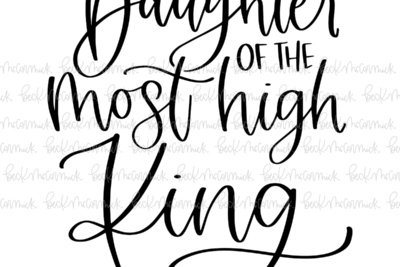 Daughter
OF THE
most high
King